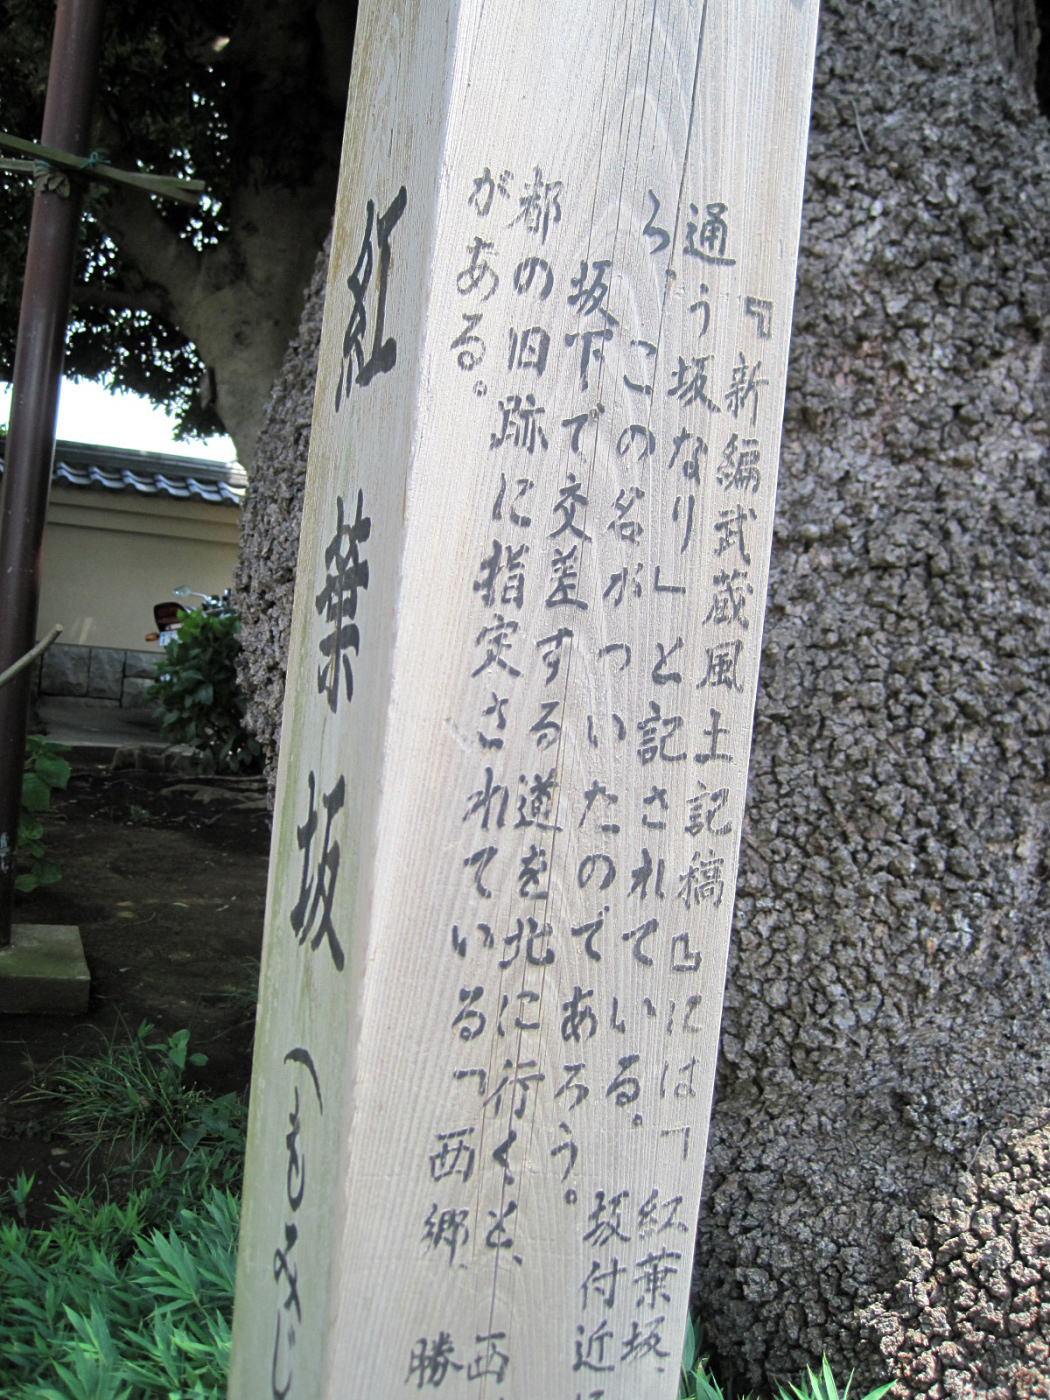 『新編武蔵風土記稿』には「紅葉坂、
通う坂なり」と記されている。坂付近
ろ、この名がついたのであろう。
坂下で交差する道を北に行くと、西
都の旧跡に指定されている「西郷 勝
がある。
紅葉坂(もみじ